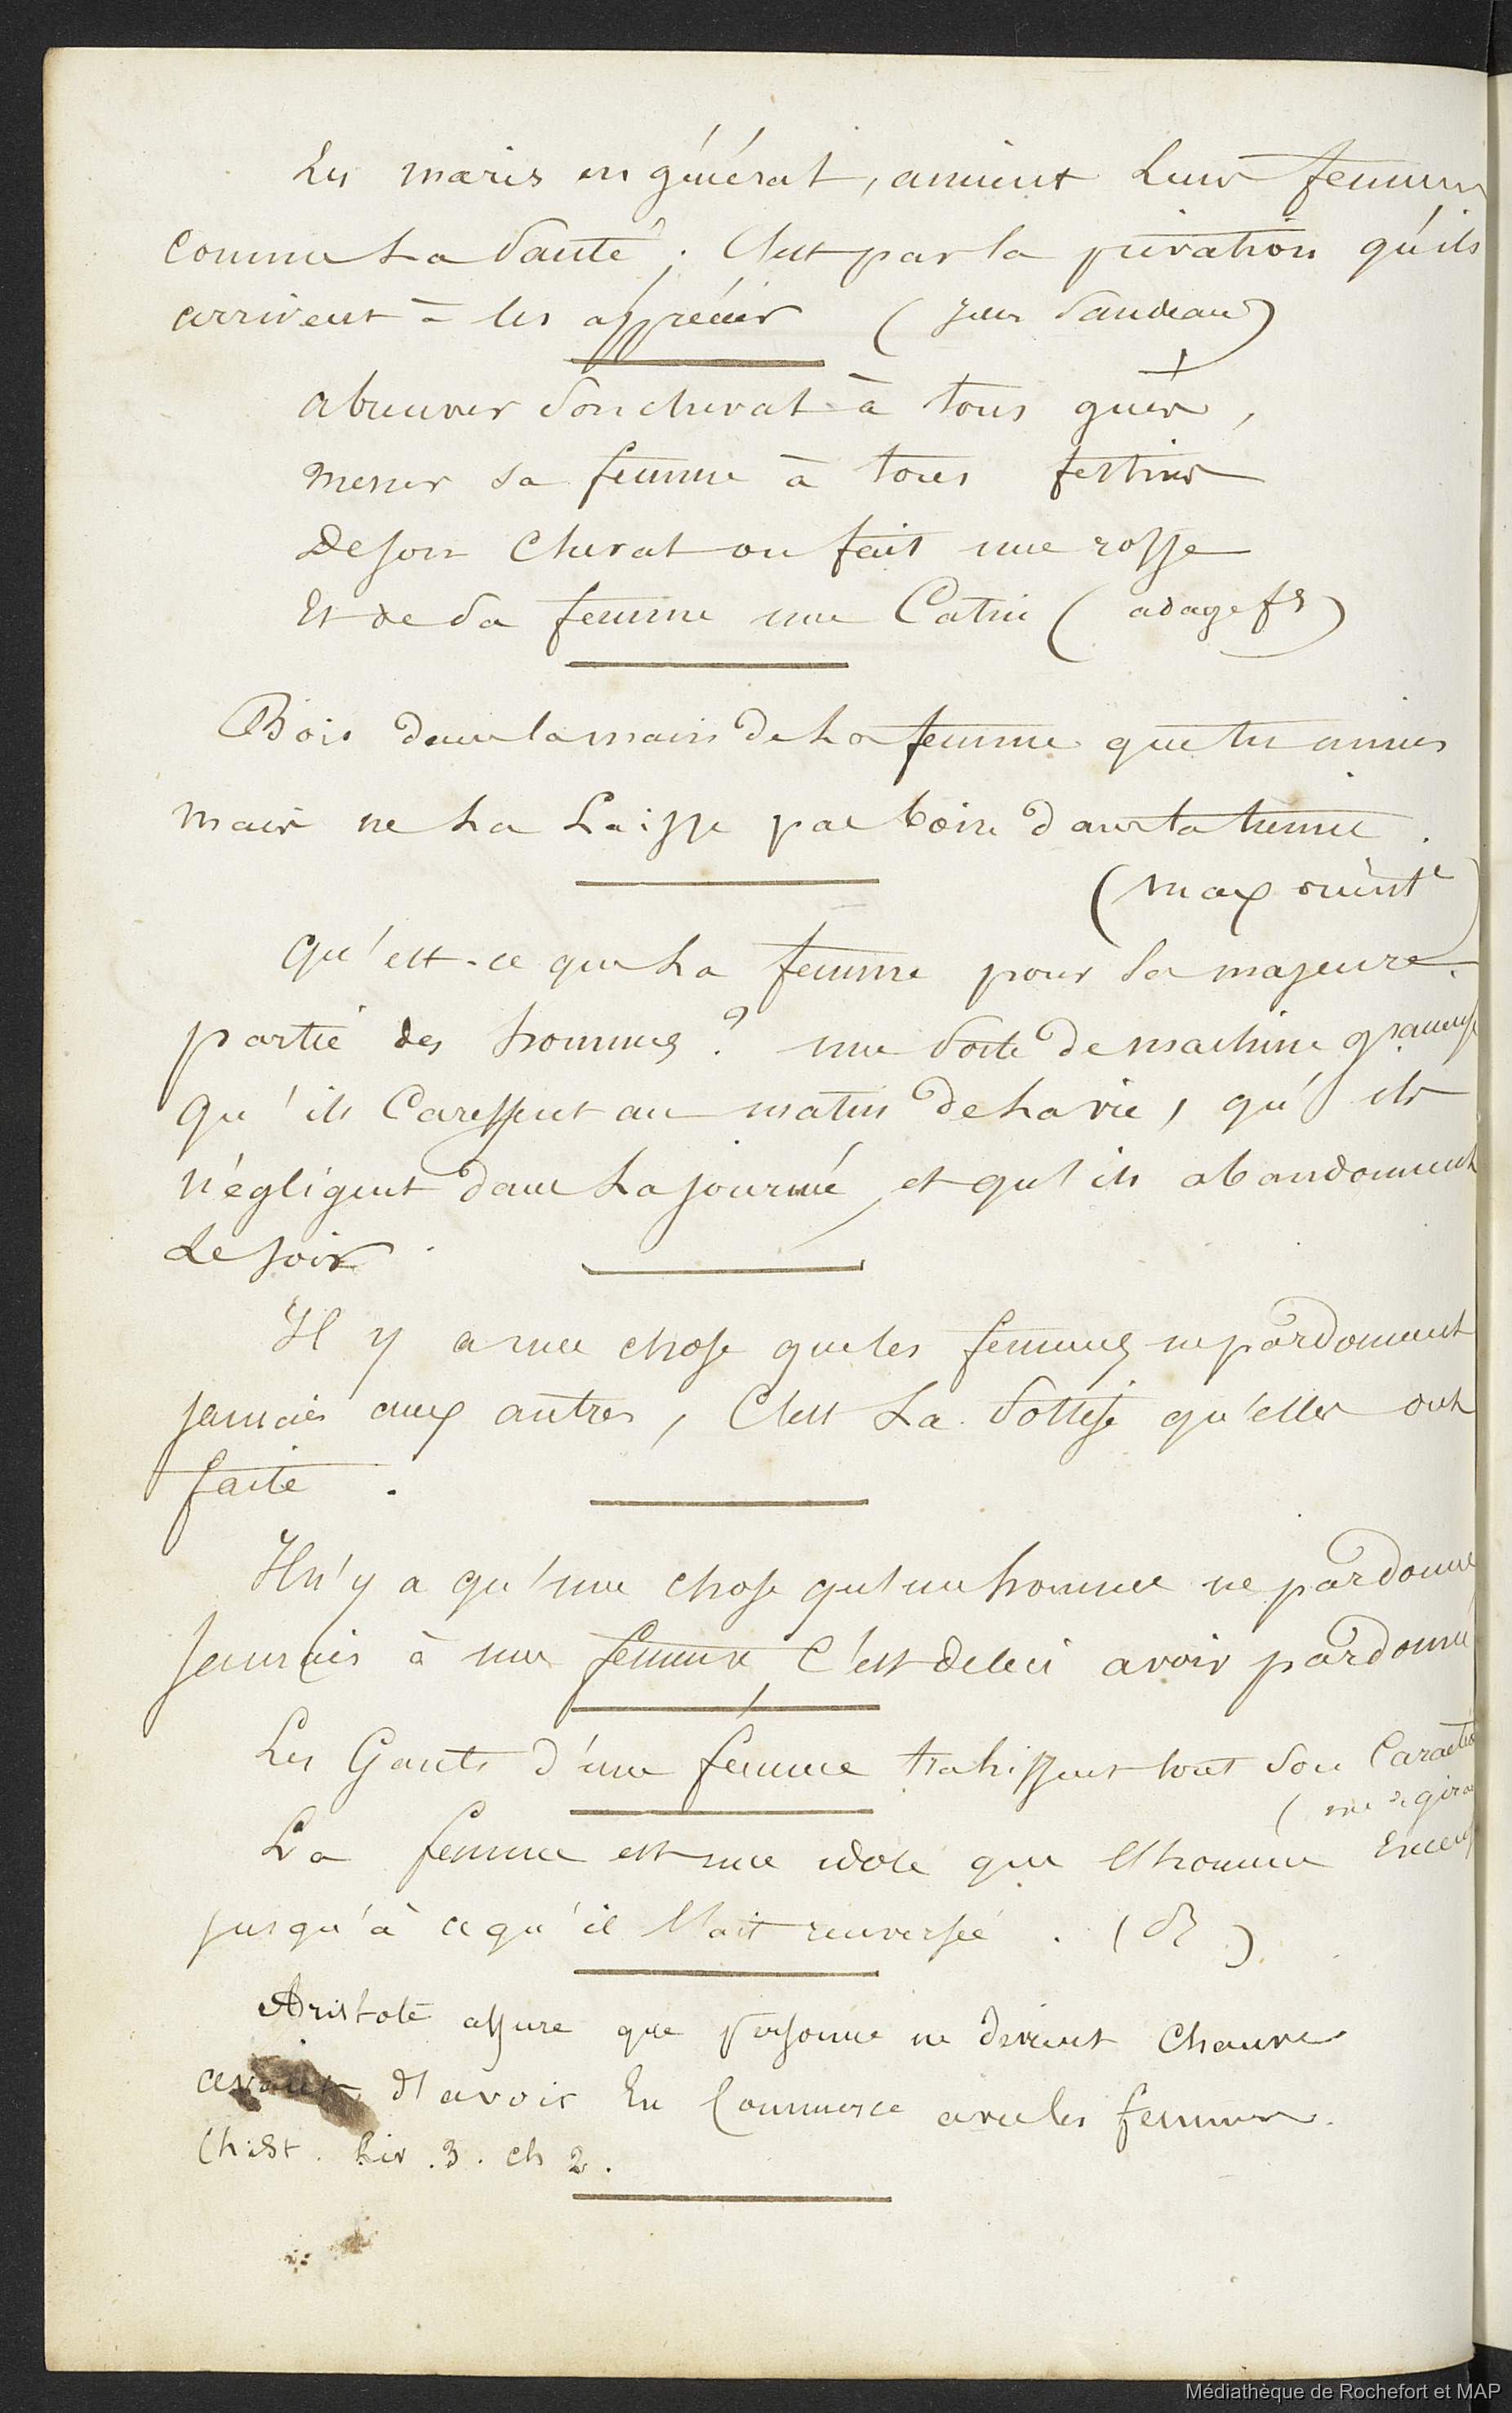 Les maris en général, aiment leurs femmes
comme la Santé ; C'est par la privation qu'ils
arrivent à les apprécier (Jules Sandeau)
abreuver son cheval à tous gués,
mener sa femme à tous festins
De son cheval on fait une rosse
Et de sa femme une Catin (adage fs)
Bois dans la main de la femme que tu aimes
mais ne la Laisse pas boire dans la tienne.
(max orientle)
Qu'est-ce que la femme pour la majeure
partie des hommes ? une sorte de machine
qu'ils Caressent au matin de la vie, qu'ils
négligent dans la journée, et qu'ils abandonnent
le soir.
Il y a une chose que les femmes ne pardonnent
jamais aux autres, C'est La Sottise qu'elles ont
faite.
Il n'y a qu'une chose qu'un homme ne pardonne
Jamais à une femme, C'est de lui avoir pardonné
Les Gants d'une femme trahissent tout son Caractè
La femme est une idole que l'homme Encens
jusqu'à ce qu'il l'ait renversée. (d)
Aristote assure que personne ne devient Chauve
avant d'avoir Eu Commerce avec les femmes.
(hist. Liv. 3. ch 2.
Médiathèque de Rochefort et MAP